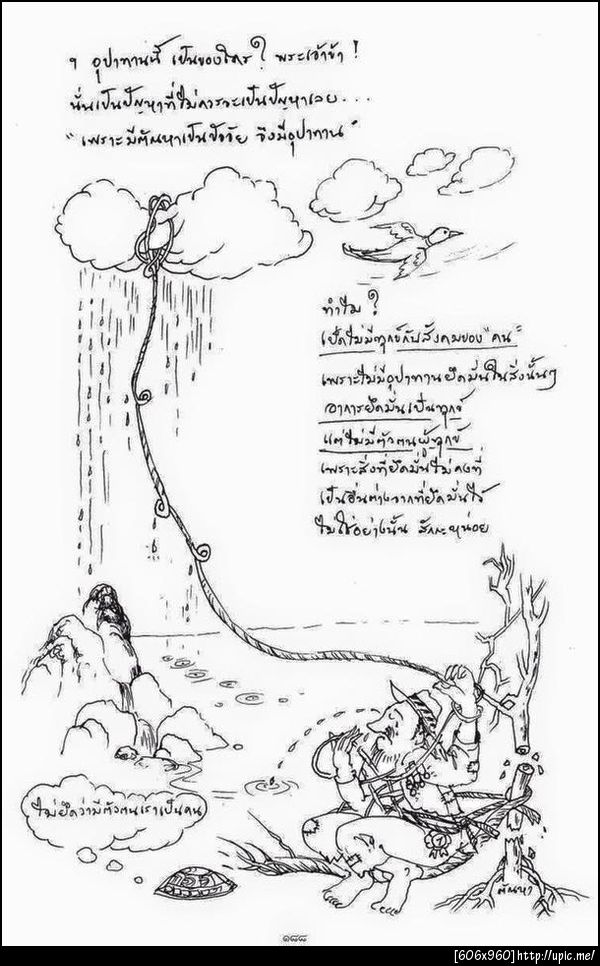 ๆ อุปาทานนี้ เป็นของใคร? พระเจ้าข้า!
นั่นเป็นปัญหาที่ไม่ควรจะเป็นปัญหาเลย...
"เพราะมีตัณหาเป็นปัจจัย จึงมีอุปาทาน"
ทำไม?
เป็ดไม่มีทุกข์กับสังคมของ"คน"
เพราะไม่มีอุปาทานยึดมั่นในสิ่งนั้นๆ
อาการยึดมั่นเป็นทุกข์
แต่ไม่มีตัวตนผู้ทุกข์
เพราะสิ่งที่ยึดมั่นไม่คงที่
เป็นอื่นต่างจากที่ยึดมั่นไว้
ไม่ใช่อย่างนั้น สักกะหน่อย
ไม่ยึดว่ามีตัวตนเราเป็นคน
ตัณหา
๑๘๘
[606x960]http://upic.me/